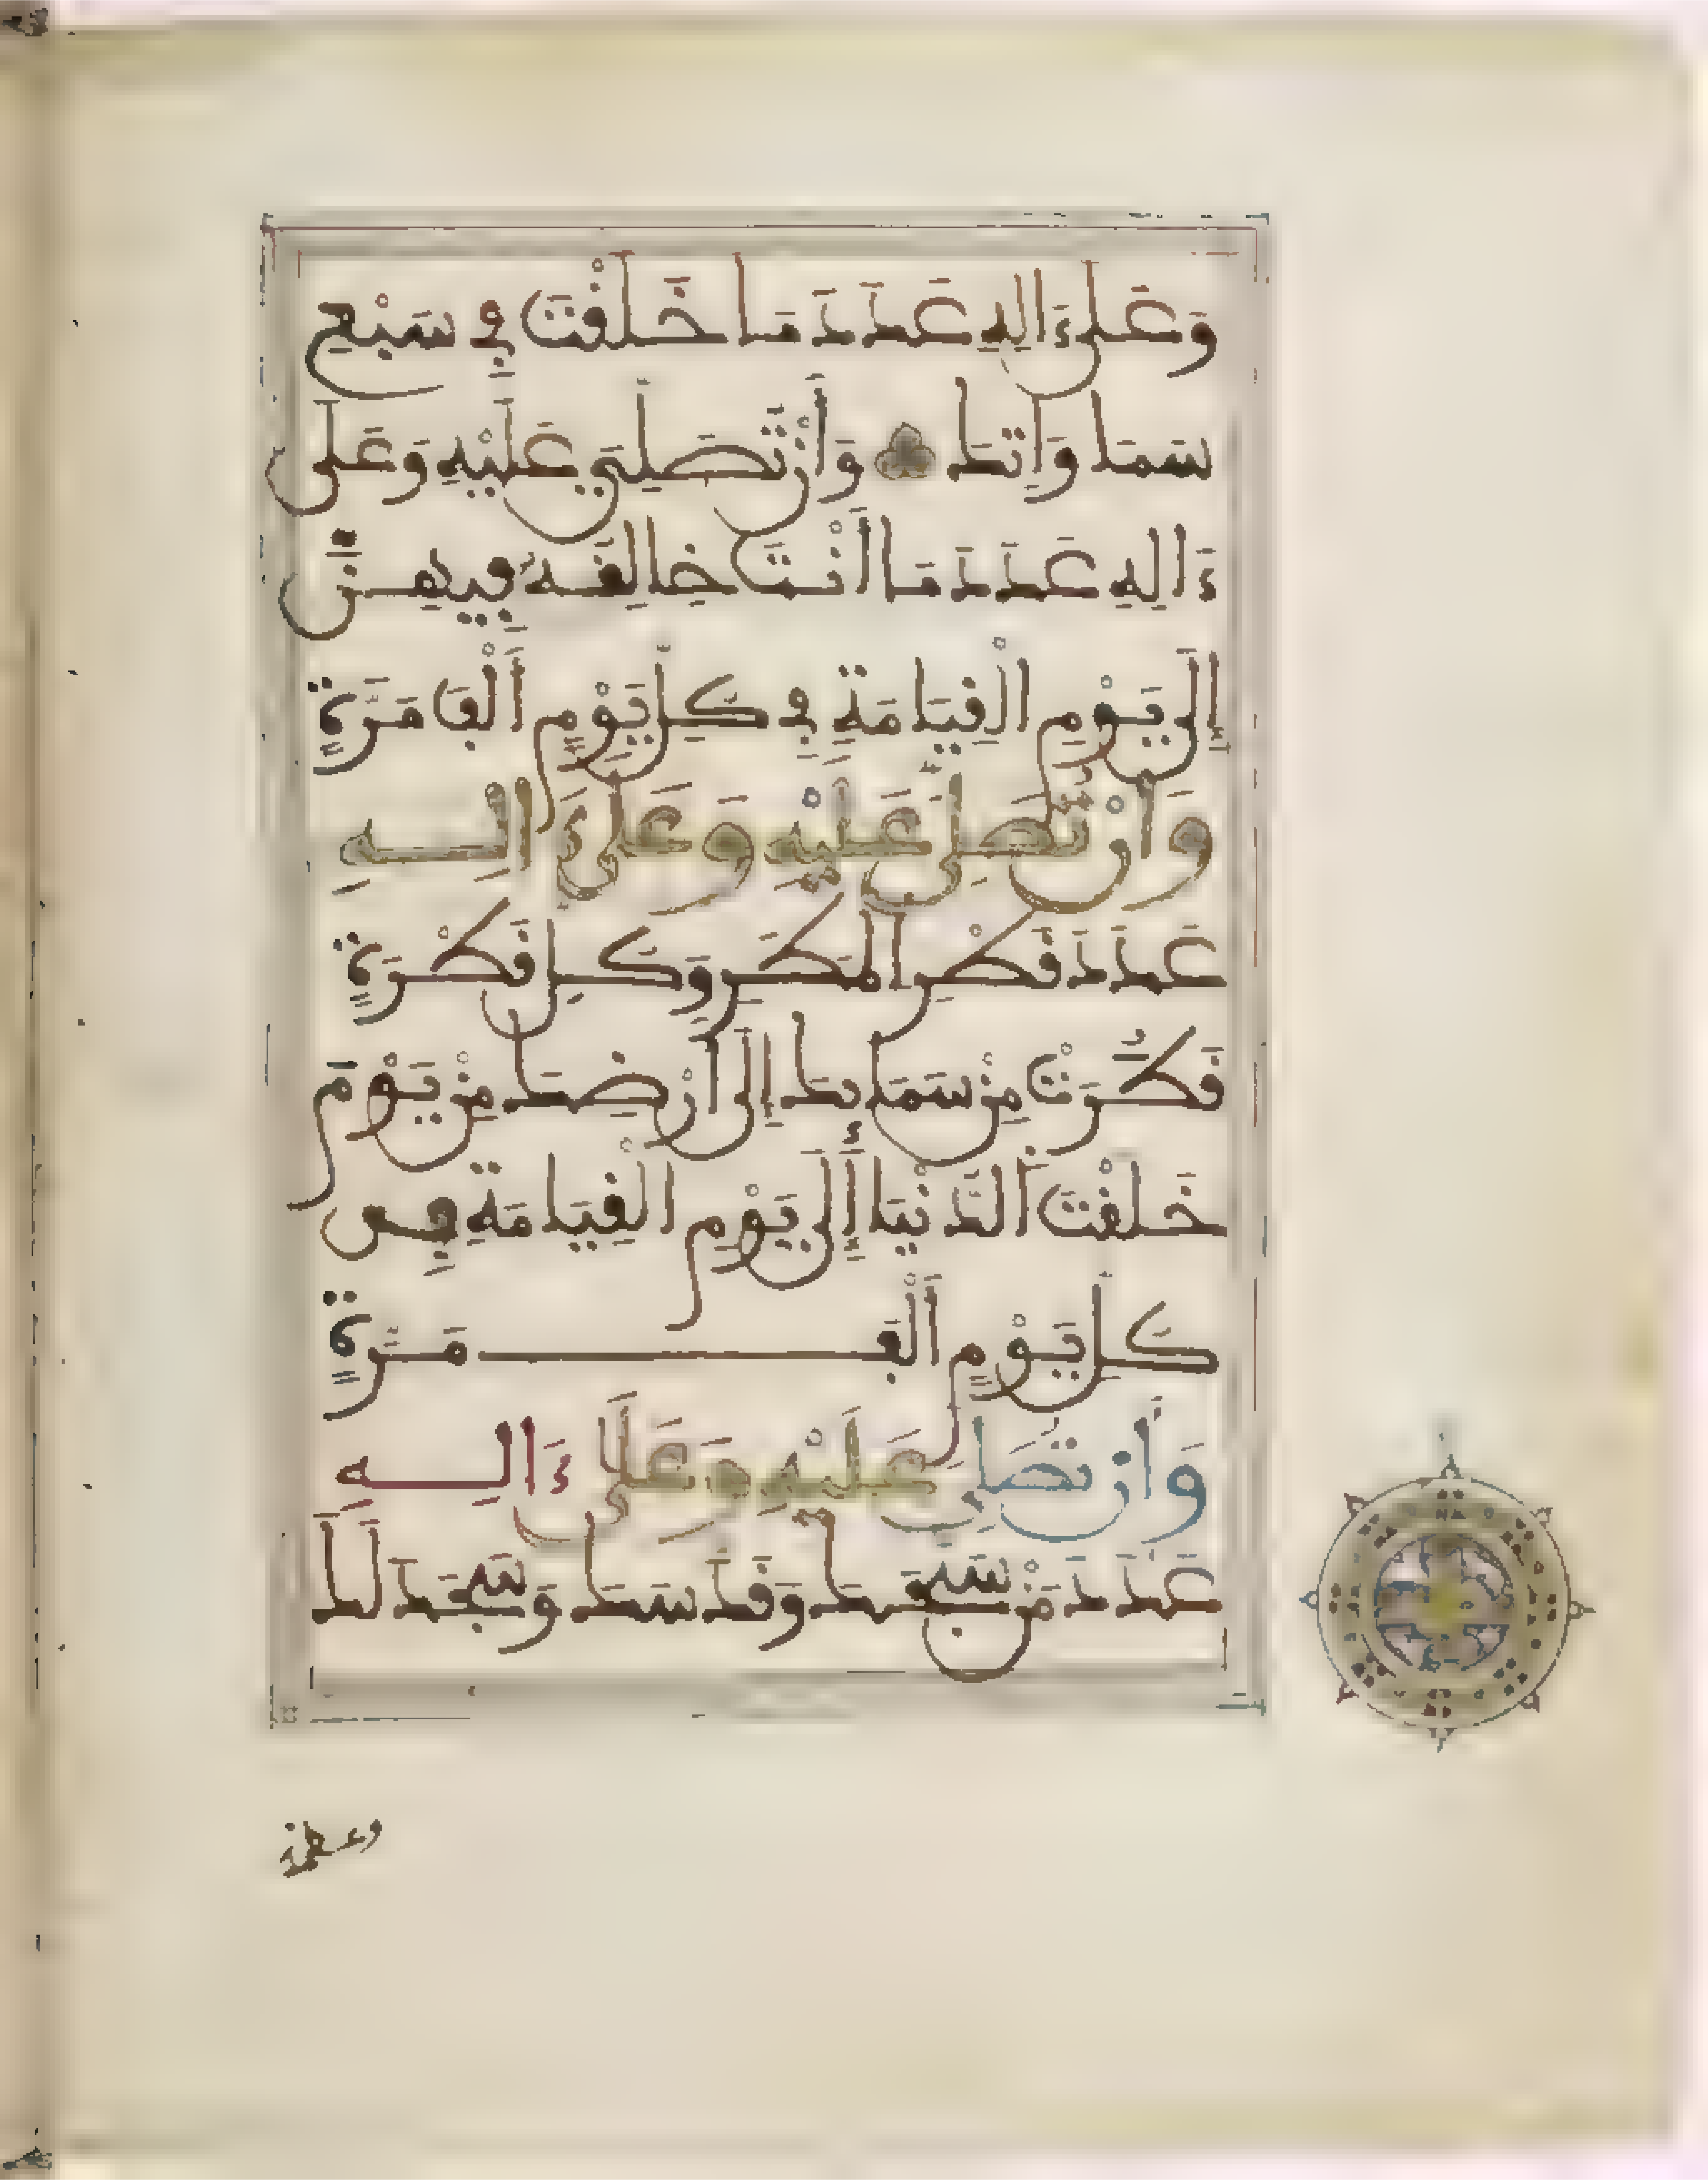 وَعَلَى ءَالِهِ عَدَدَ مَا خَلَقْتَ فِي سَبْعِ
سَمَاوَاتِكَ وَأَنْ تُصَلِّيَ عَلَيْهِ وَعَلَى
ءَالِهِ عَدَدَ مَا أَنْتَ خَالِقُهُ فِيهِنَّ
إِلَى يَوْمِ الْقِيَامَةِ فِي كُلِّ يَوْمٍ أَلْفَ مَرَّةٍ
وَأَنْ تُصَلِّيَ عَلَيْهِ وَعَلَى ءَالِهِ
عَدَدَ قَطْرِ الْمَطَرِ وَكُلِّ قَطْرَةٍ
قَطَرَتْ مِنْ سَمَائِكَ إِلَى أَرْضِكَ مِنْ يَوْمَ
خَلَقْتَ الدُّنْيَا إِلَى يَوْمِ الْقِيَامَةِ فِي
كُلِّ يَوْمٍ أَلْفَ مَرَّةٍ
وَأَنْ تُصَلِّيَ عَلَيْهِ وَعَلَى ءَالِهِ
عَدَدَ مَنْ سَبَّحَكَ وَقَدَّسَكَ وَسَجَدَ لَكَ
وعظمك